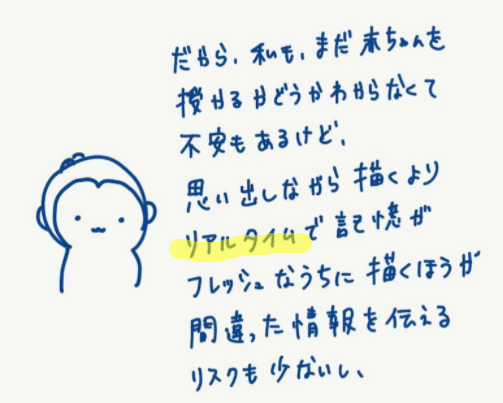 だから、私も、まだ赤ちゃんを
授かるかどうかわからなくて
不安もあるけど、
思い出しながら描くより
リアルタイムで記憶が
フレッシュなうちに描くほうが
間違った情報を伝える
リスクも少ないし、